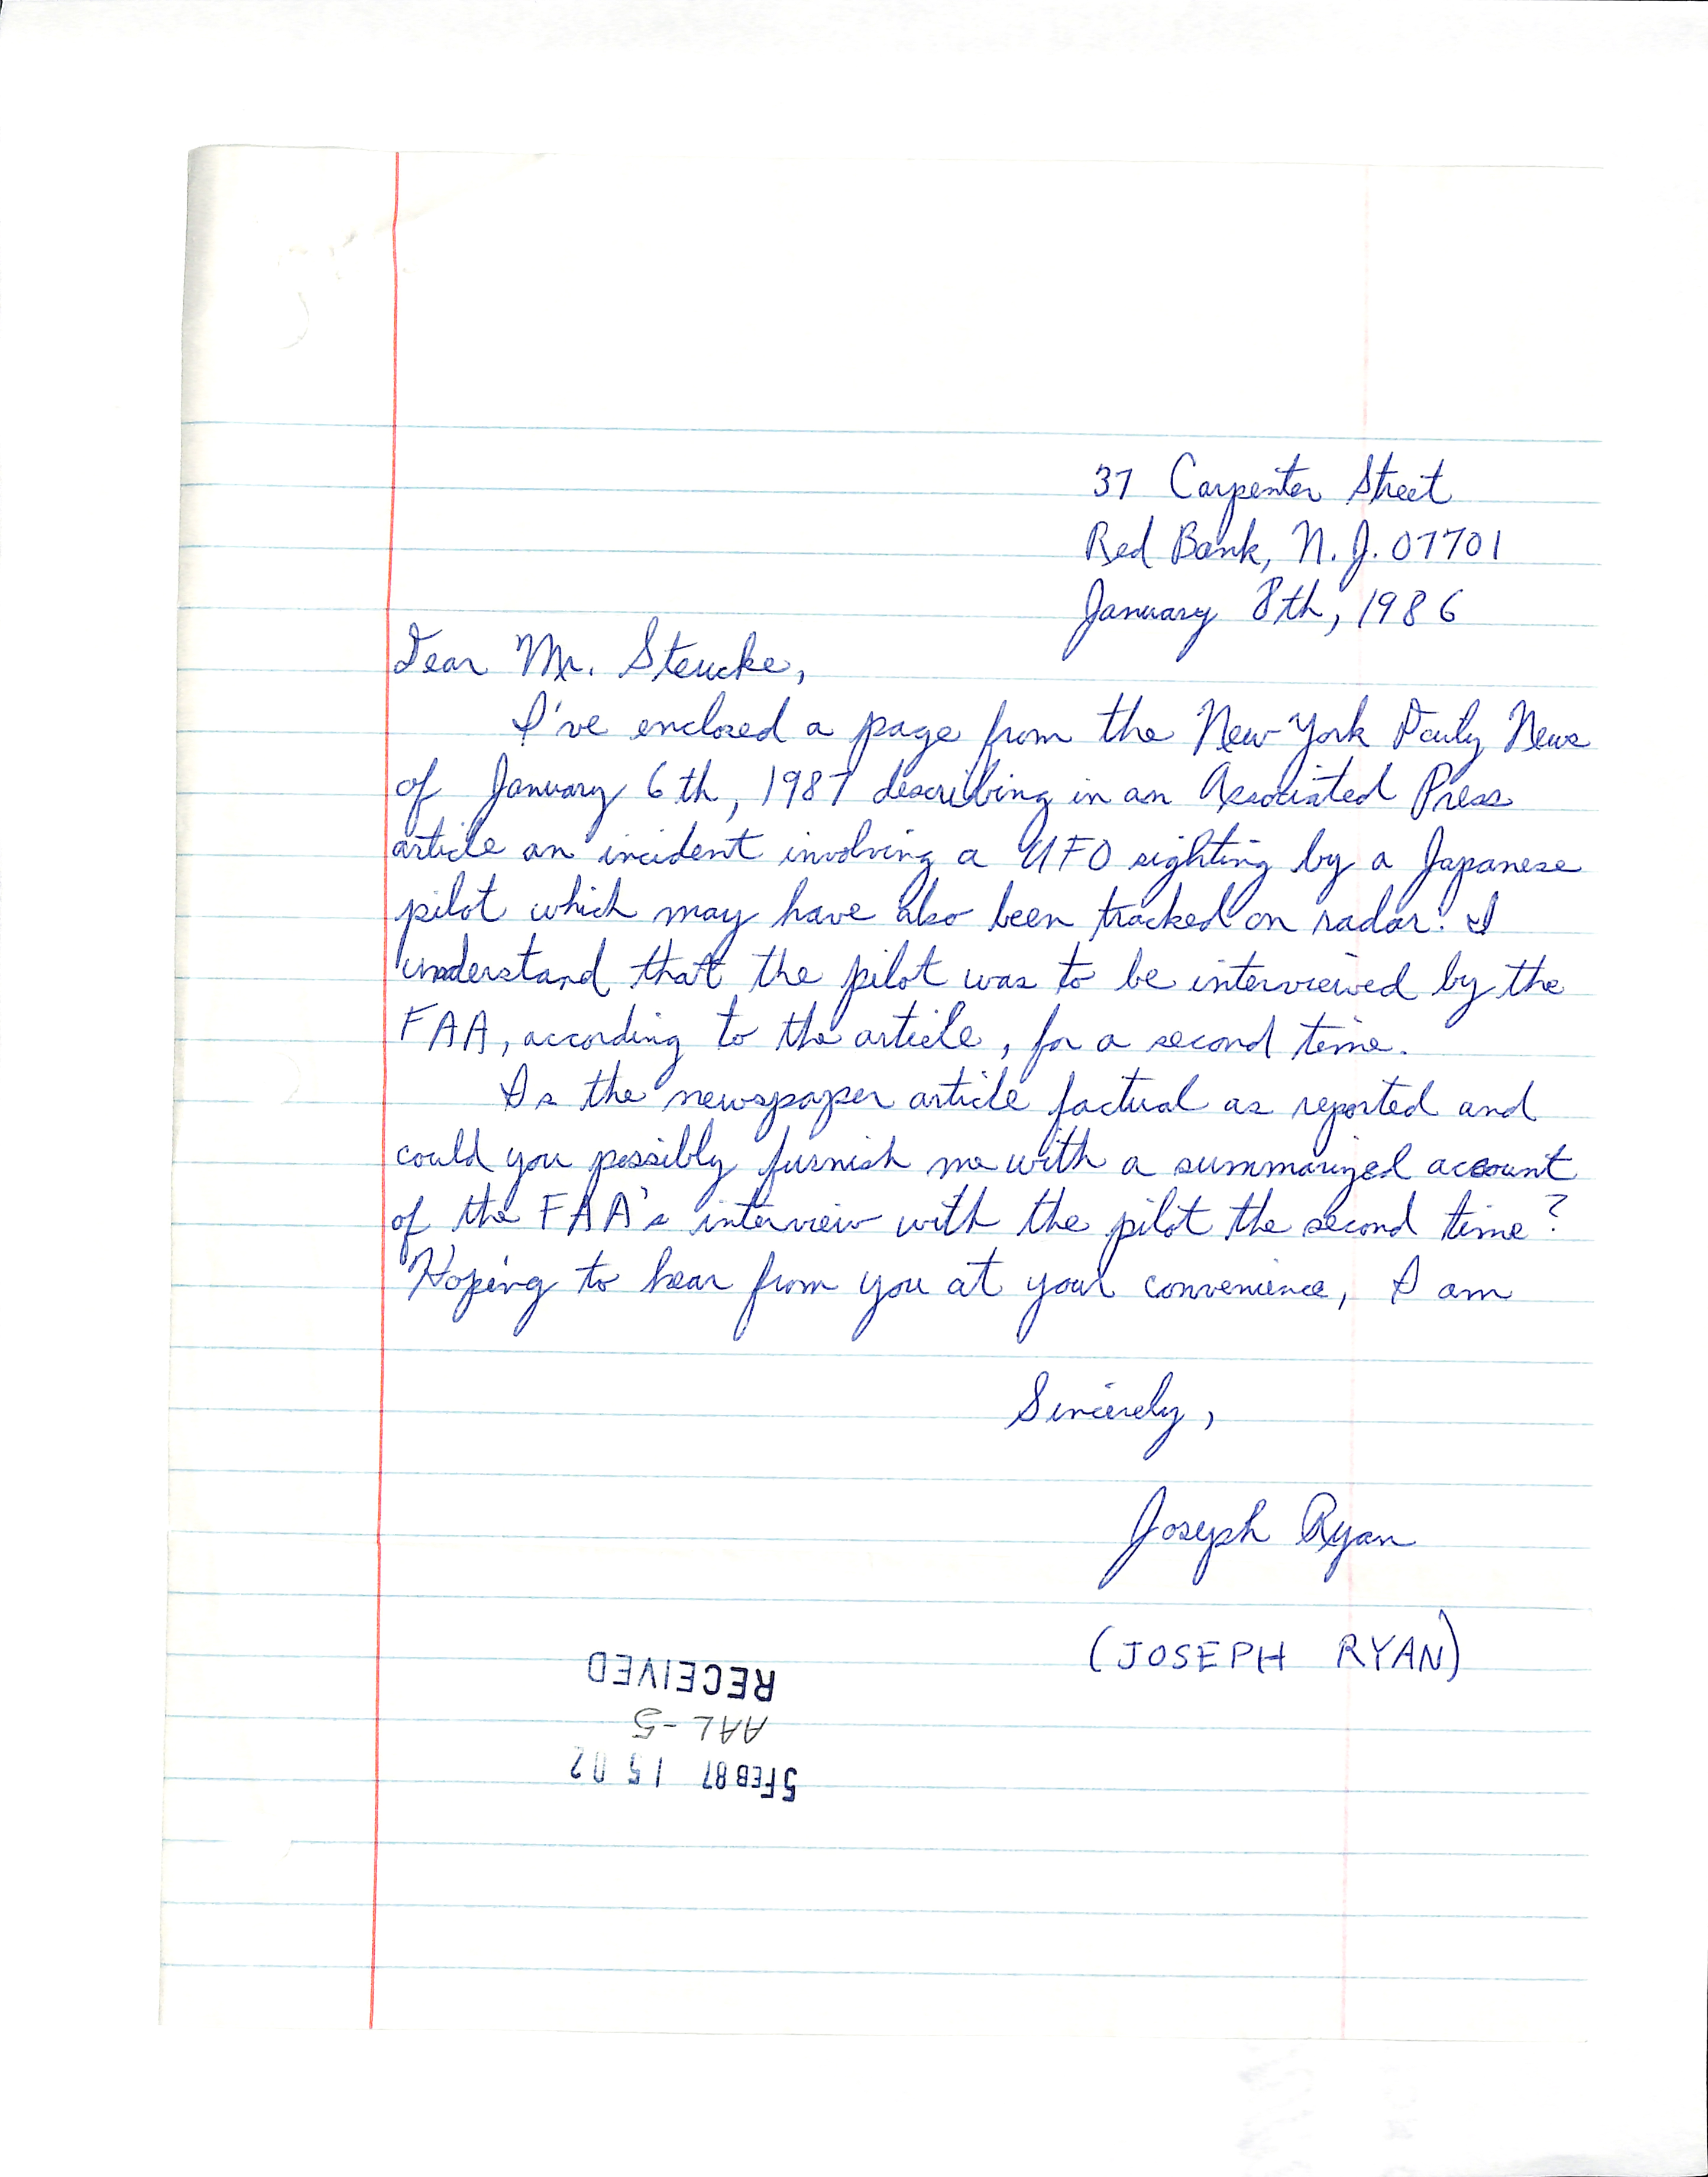 37 Carpenter Street
Red Bank, N.J. 07701
January 8th, 1986
Dear Mr. Steucke,
I've enclosed a page from the New York Daily News
of January 6th, 1987 describing in an Associated Press
article an incident involving a UFO sighting by a Japanese
pilot which may have also been tracked on radar. I
understand that the pilot was to be interviewed by the
FAA, according to the article, for a second time.
Is the newspaper article factual as reported and
could you possibly furnish me with a summarized account
of the FAA's interview with the pilot the second time?
Hoping to hear from you at your convenience, I am
Sincerely,
Joseph Ryan
(JOSEPH RYAN)
5 FEB 87 15 02
AAL-5
RECEIVED